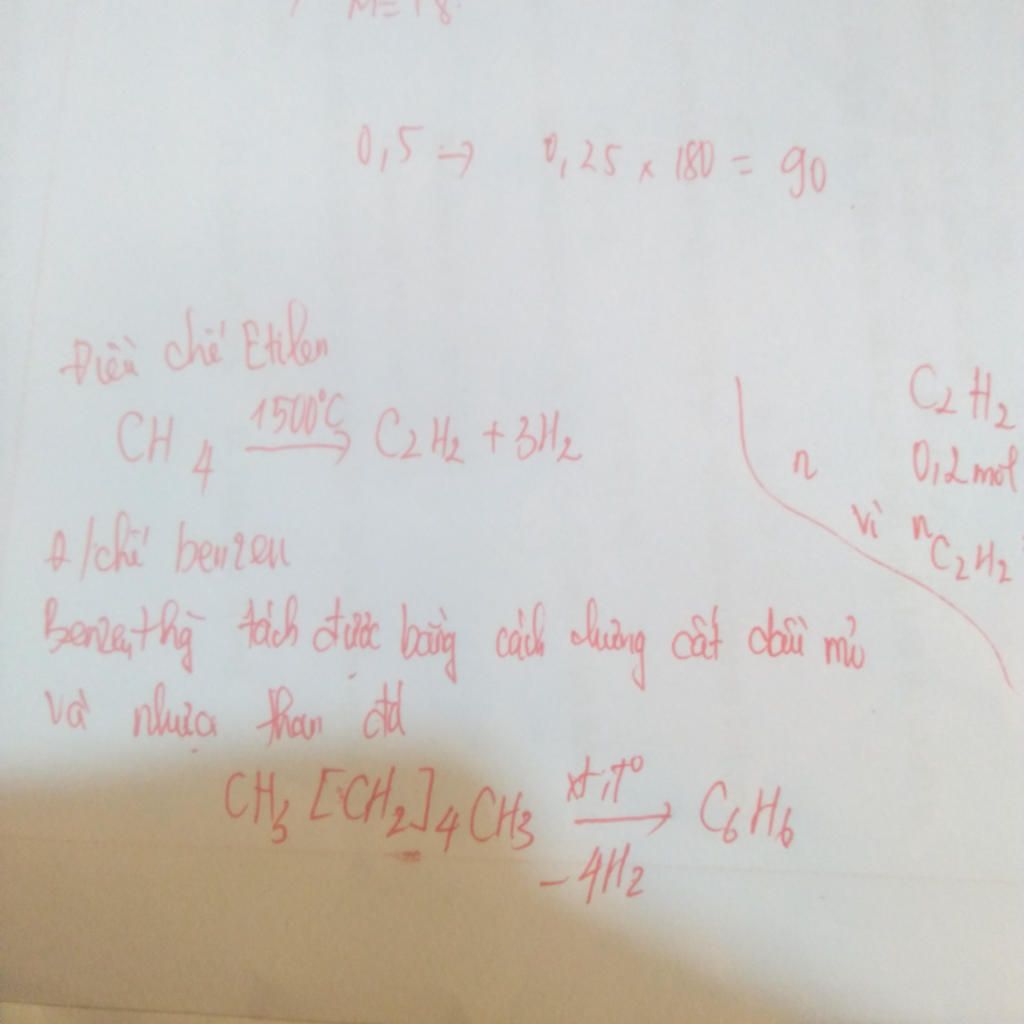 M = 18
0,5 → 0,25 × 180 = 90
Điều chế Etilen
CH4 1500°C → C2H2 + 3H2
Đ/chế benzen
Benzen, thg tách được bằng cách chưng cất dầu mỏ
và nhựa than đá
CH3 [CH2]4 CH3 xt, t° → C6H6
- 4H2
C2H2
n 0,2 mol
vì nC2H2